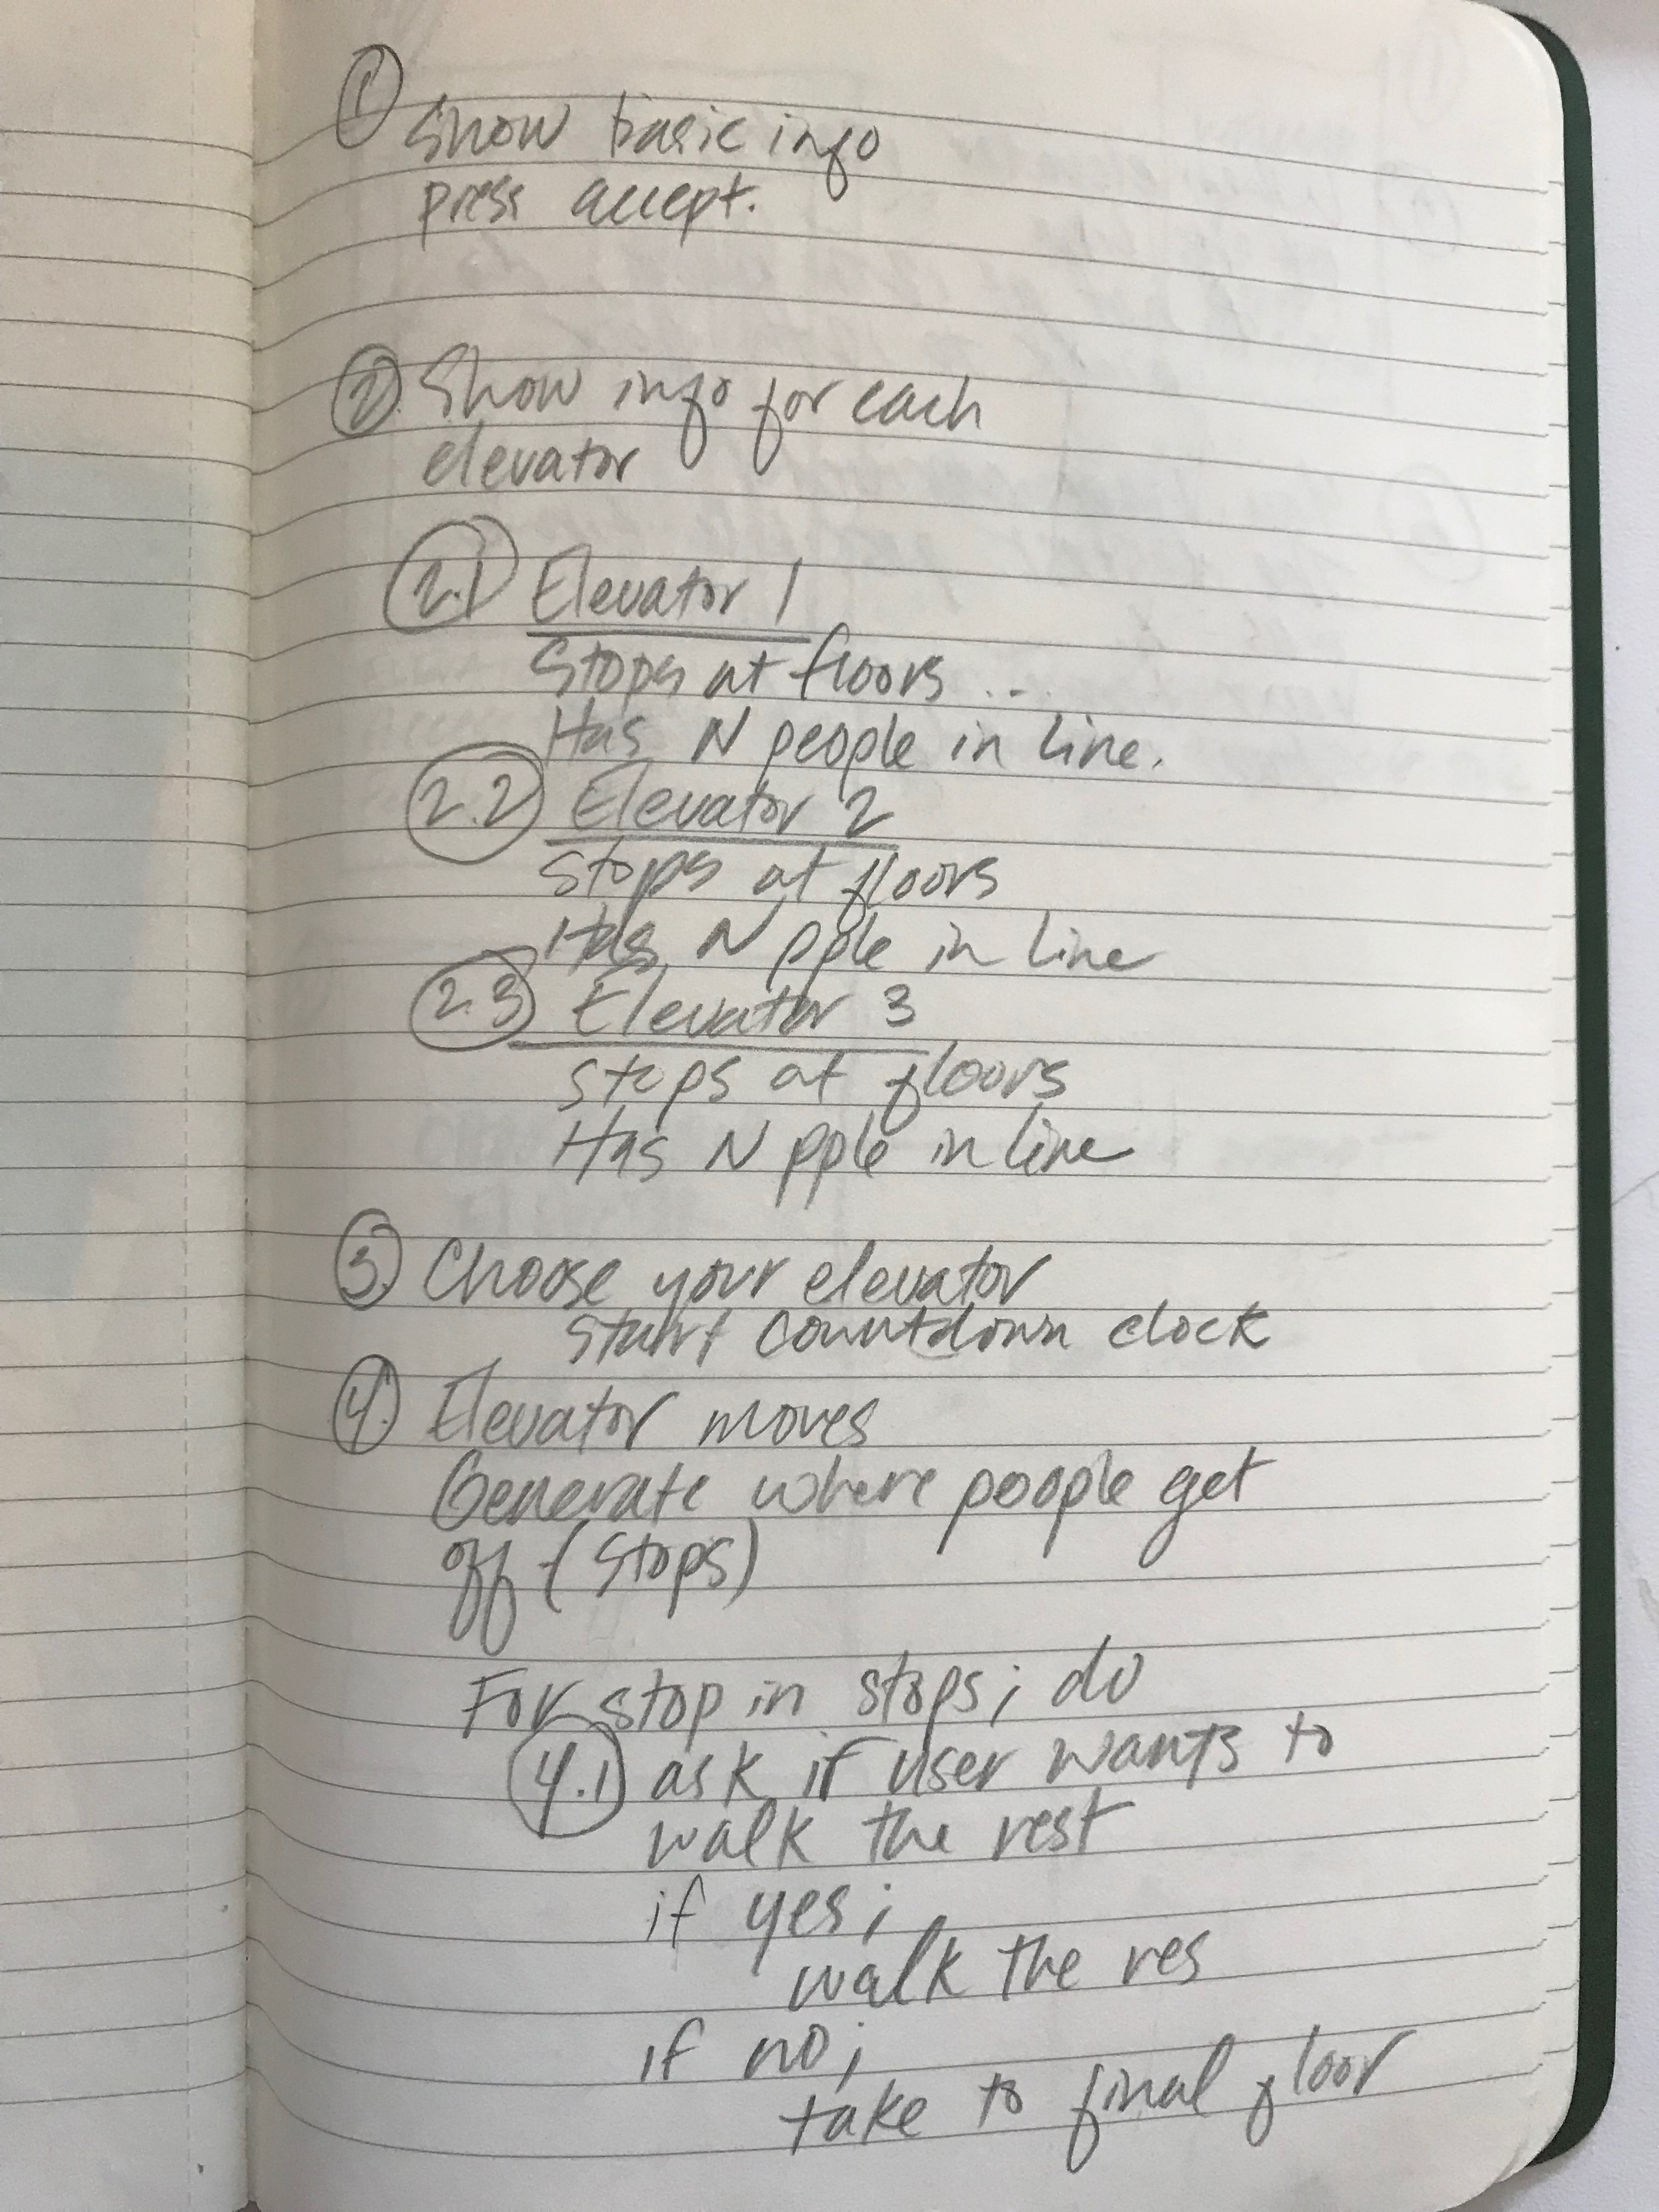 ①
Show basic info
press accept.
② Show info for each
elevator
2.1 Elevator 1
Stops at floors ...
Has N people in line.
2.2 Elevator 2
Stops at floors
Has N pple in line
2.3 Elevator 3
stops at floors
Has N pple in line
3. Choose your elevator
start countdown clock
4. Elevator moves
Generate where people get
off (stops)
For stop in stops; do
4.1 ask if user wants to
walk the rest
if yes;
walk the res
if no;
take to final floor